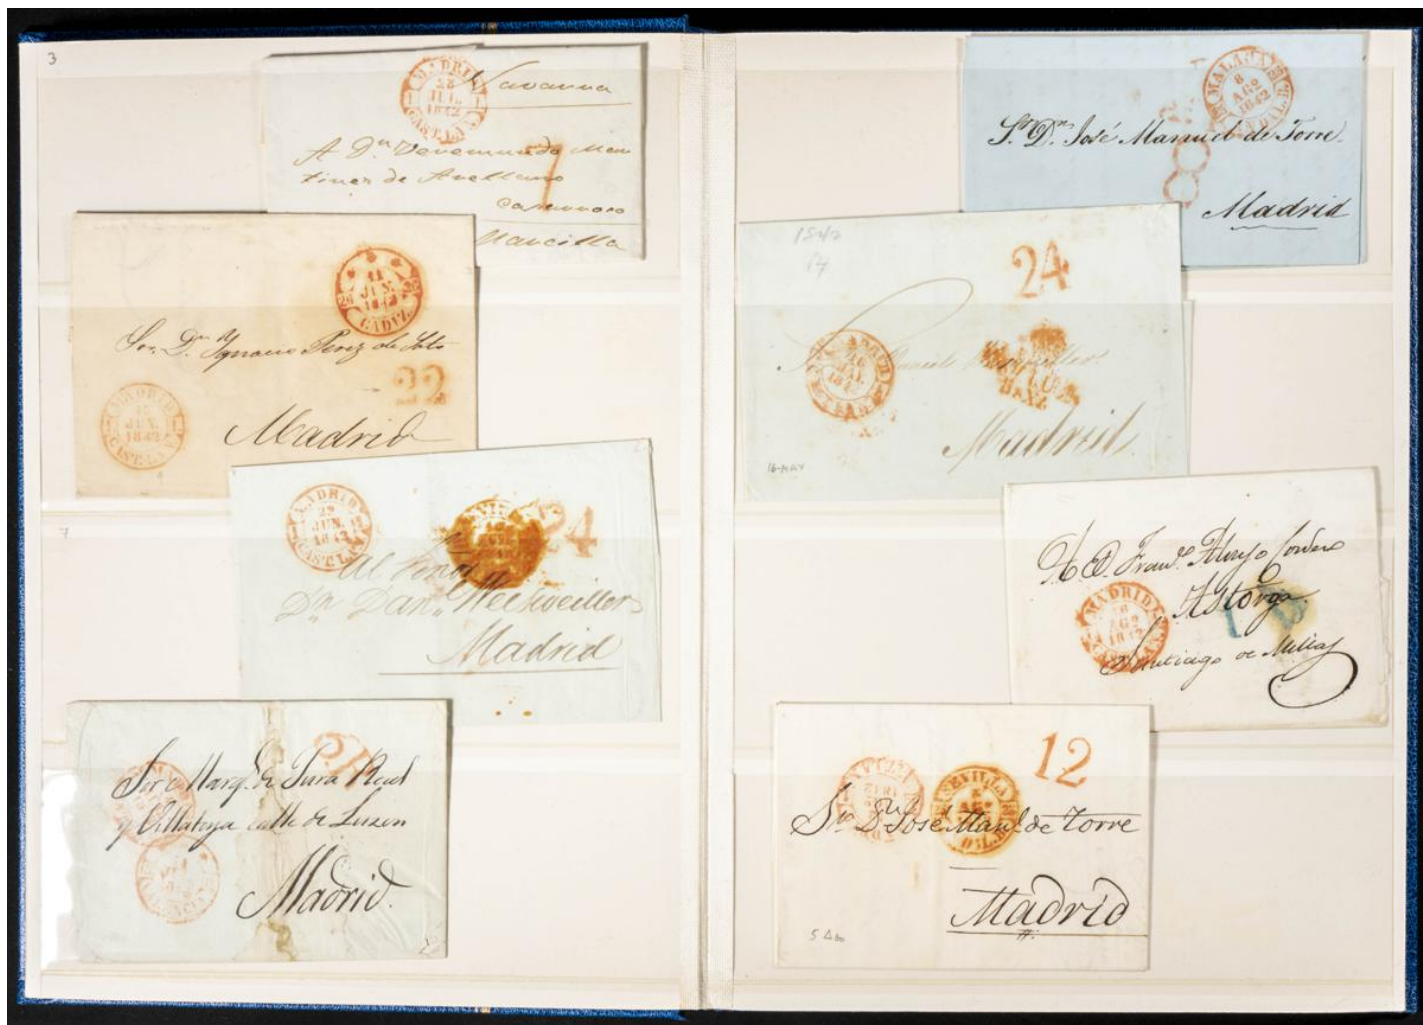 3
MADRID
23
JUL.
1842
CAST.LA N.
Navarra
A Dn. Veremundo Mar
tinez de Arellano
Marcilla
7
11
JUN.
1842
CADIZ
Sor. Dn. Ygnacio Perez de Soto
22
MADRID
15
JUN.
1842
CAST.LA N.
Madrid
7
MADRID
29
JUN.
1842
CAST.LA N.
24
Al Señor
Dn. Danl. Weisweiller
Madrid
Sor. Marqs. de Jura Real
y Villatoya calle de Luzon
Madrid.
MALAGA
8
AGO
1842
ANDAL.B.
Sr. Dn. José Manuel de Torre.
8
Madrid
1842
24
Madrid
16-MAY
A D. Franco. Alonso Cordero
Astorga
MADRID
AGO
1842
Santiago de Millas
12
SEVILLA
Sr. Dn. José Manl. de Torre
Madrid
5 Ago